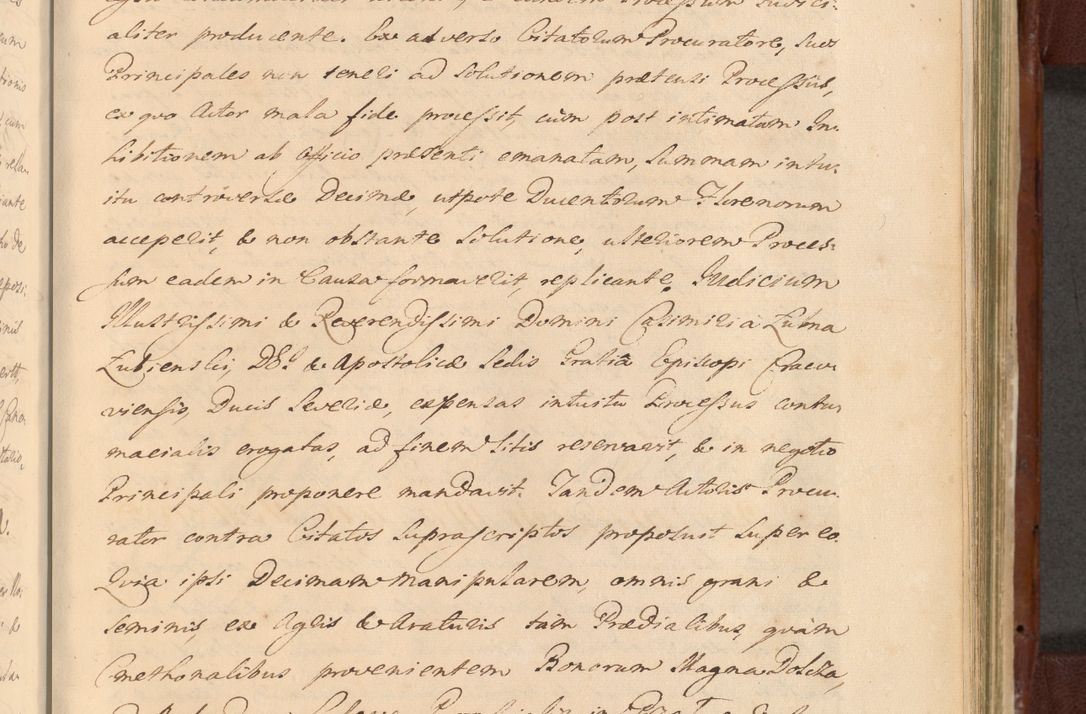 aliter producente. Ex adverso Citatorum Procuratore, suos
Principales non teneri ad solutionem prætensi Processûs,
ex quo Actor mala fide processit, cùm post intimatam In-
hibitionem ab Officio præsenti emanatam, summam intu-
itu controversæ Decimæ, utpote Ducentorum Florenorum
acceperit, & non obstante solutione, ulteriorem Proces-
sum eadem in Causa formaverit, replicante. Judicium
Illustrissimi & Reverendissimi Domini Casimiri à Łubna
Łubienski, DEI & Apostolicæ Sedis Gratiâ Episcopi Craco-
viensis, Ducis Severiæ, expensas intuitu Processus contu-
macialis erogatas, ad finem Litis reservavit, & in negotio
Principali proponere mandavit. Tandem Actoris Procu-
rator contra Citatos suprascriptos proposuit super eo.
Quia ipsi Decimam manipularem, omnis grani &
seminis, ex Agris & Araturis tàm Prædialibus, quàm
Cmethonalibus provenientem Bonorum Magna Dolcza,